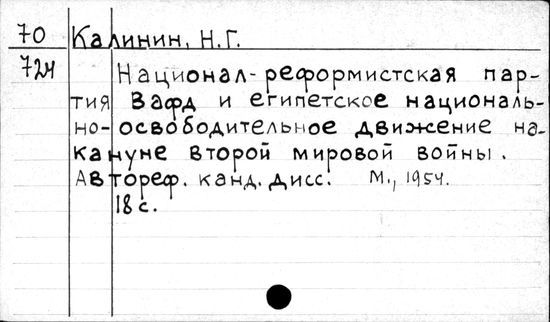 70 Калинин, Н.Г.
724 Национал-реформистская пар-
тия Вафд и египетское националь-
но-освободительное движение на-
кануне второй мировой войны.
Автореф. канд. дисс. М., 1954.
18 с.